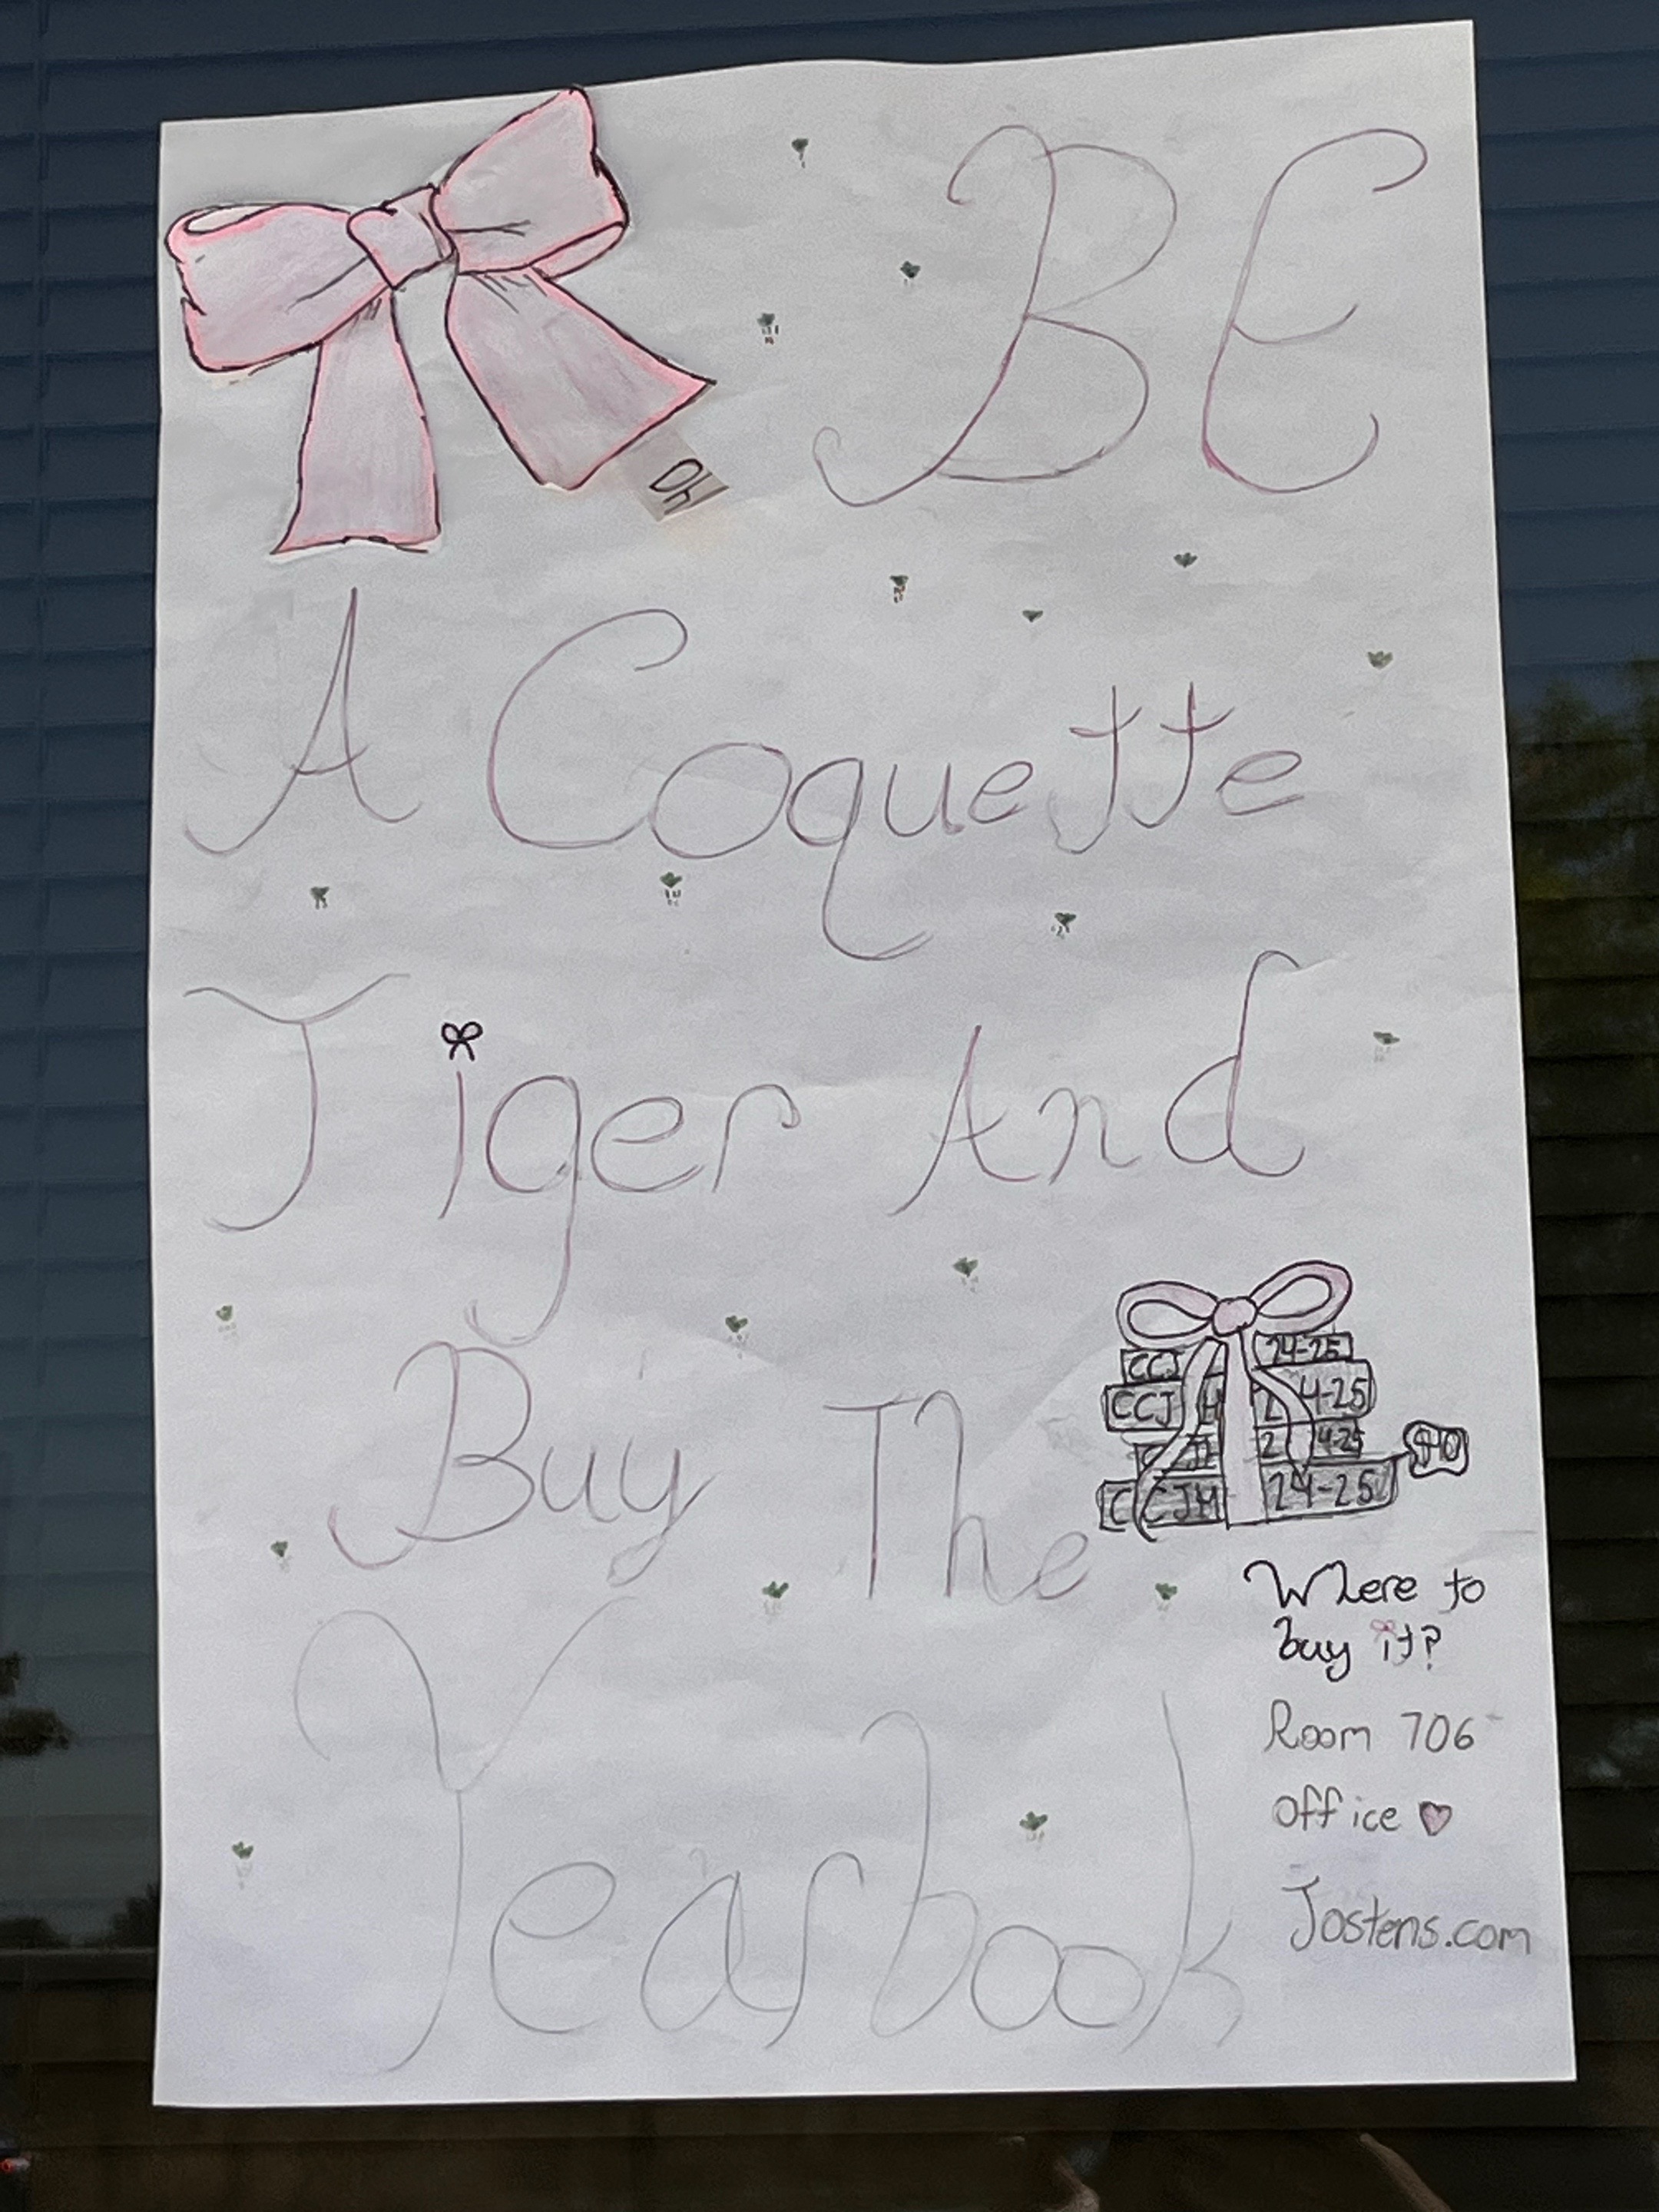 BE
A Coquette
Tiger And
Buy The
Yearbook
CCJ 24-25
CCJ H 24-25
24-25
CCJH 24-25
Where to
buy it?
Room 706
office
Jostens.com